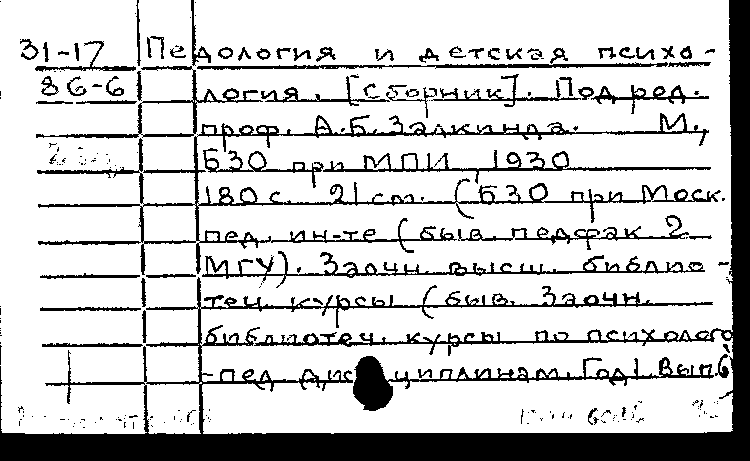 31-17 Педология и детская психо-
86-6 логия. [Сборник]. Под ред.
проф. А.Б. Залкинда. М.,
БЗО при МПИ, 1930
180 с. 21 см. (БЗО при Моск.
пед. ин-те (быв. педфак 2
МГУ). Заочн. высш. библио-
теч. курсы (быв. Заочн.
библиотеч. курсы по психолого
-пед. дисциплинам. Год 1. Вып. 6